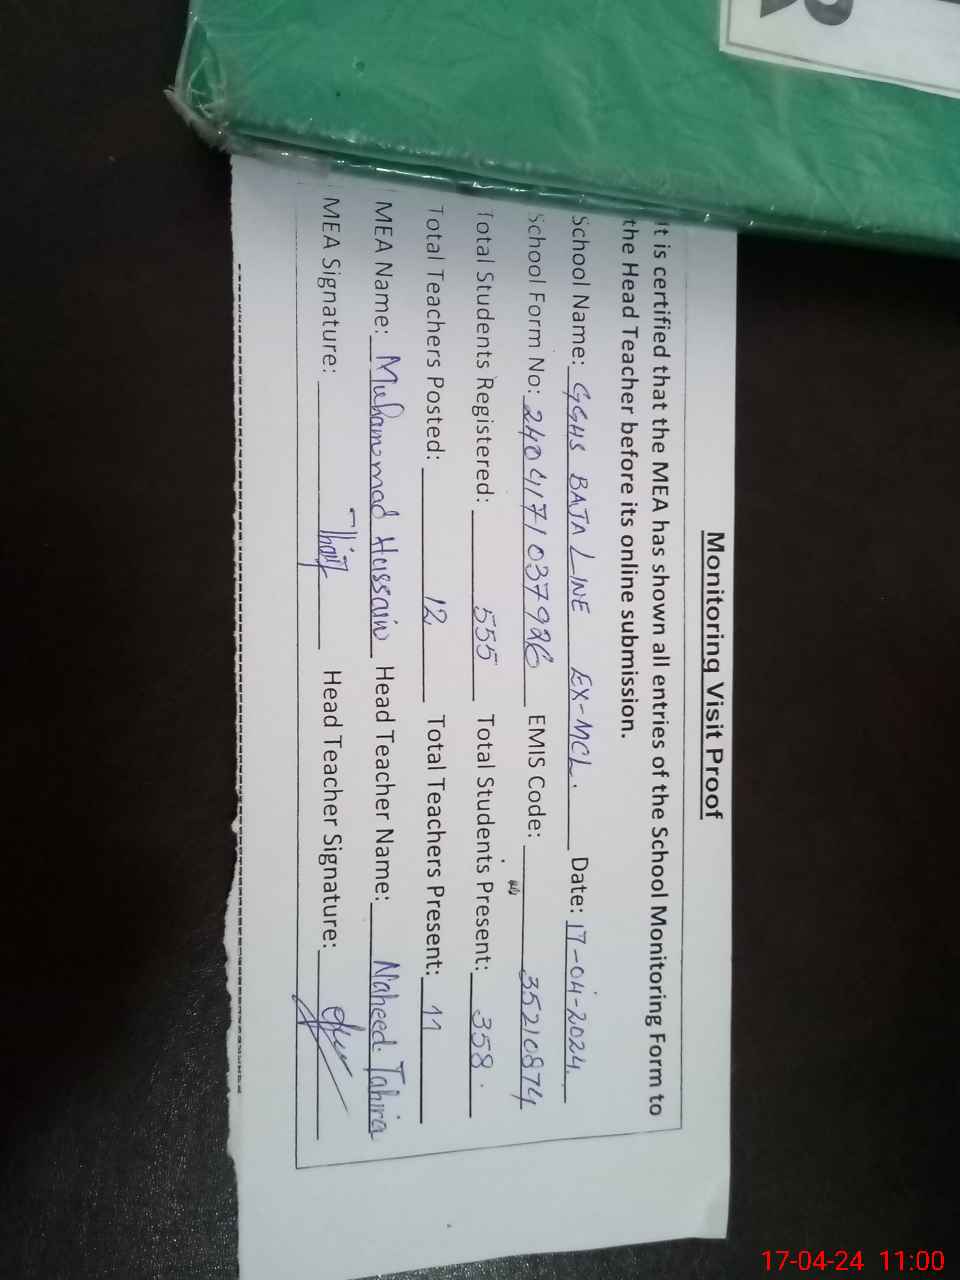 R
Monitoring Visit Proof
It is certified that the MEA has shown all entries of the School Monitoring Form to
the Head Teacher before its online submission.
School Name: GGHS BAJA LINE EX-MCL. Date: 17-04-2024.
School Form No: 2404171037926 EMIS Code: 35210874
Total Students Registered: 555 Total Students Present: 358.
Total Teachers Posted: 12 Total Teachers Present: 11
MEA Name: Muhammad Hussain Head Teacher Name: Naheed Tahira
MEA Signature: Head Teacher Signature:
17-04-24 11:00